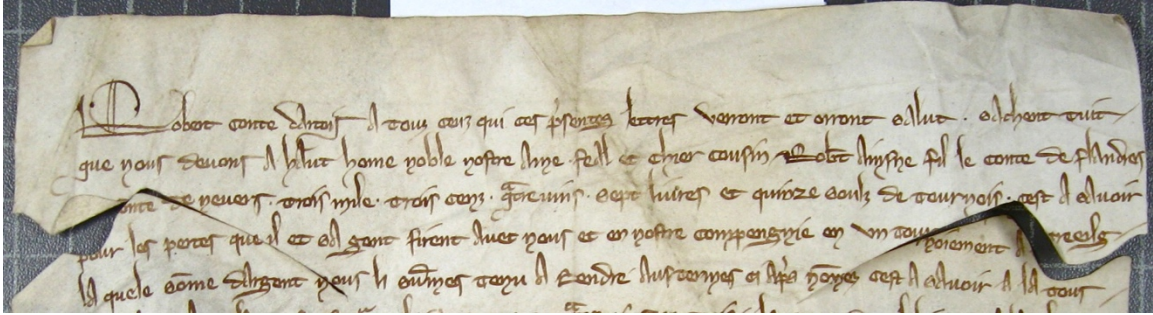 Robert conte dartois A touz ceuz qui ces p'sentes lettres verront et orront salut . sachent tuit
que nous devons A haut home noble nostre Ame . feal et chier cousin Rob't Ainsne fil le conte de flandres
conte de nevers . trois mile . trois cenz . q'trevins . sept livres et quinze souls de tournois . cest A savoir
pour les pertes que il et sa gent firent avec nous et en nostre compengnie en un tournoiement A creeils
la quele some dargent nous li sumes tenu A rendre Aus termes ci Ap's nomes cest A savoir A la tous